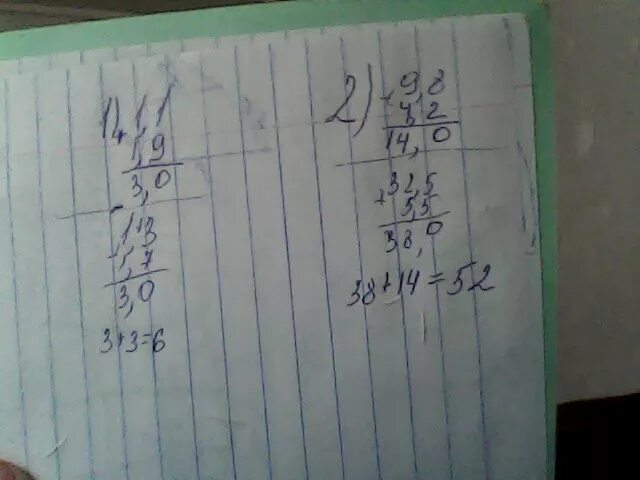 1) 1,1
+ 1,9
3,0
1,3
+ 1,7
3,0
3+3=6
2) 9,8
+ 4,2
14,0
32,5
+ 5,5
38,0
38+14=52